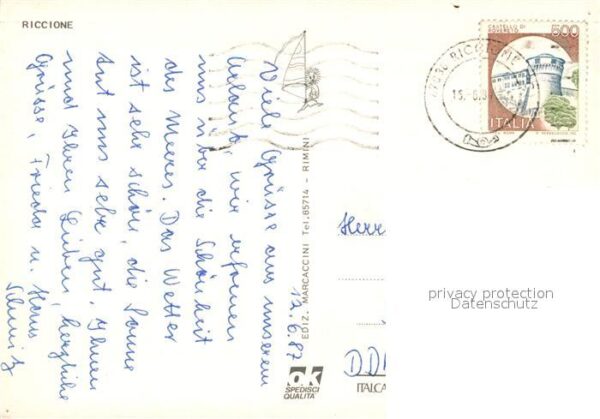 RICCIONE
12.6.87
Viele Grüsse aus unserem
Urlaub, wir erfreuen
uns über die Schönheit
des Meeres. Das Wetter
ist sehr schön, die Sonne
tut uns sehr gut. Ihnen
und Ihren Lieben, herzliche
Grüsse, Frieda u. Hans
Schmitz
EDIZ. MARCACCINI Tel. 85714 - RIMINI
ok
SPEDISCI
QUALITÀ
ITALCA
RICCIONE
CASTELLO DI
ROVERETO
500
ITALIA
Herr
DD
privacy protection
Datenschutz